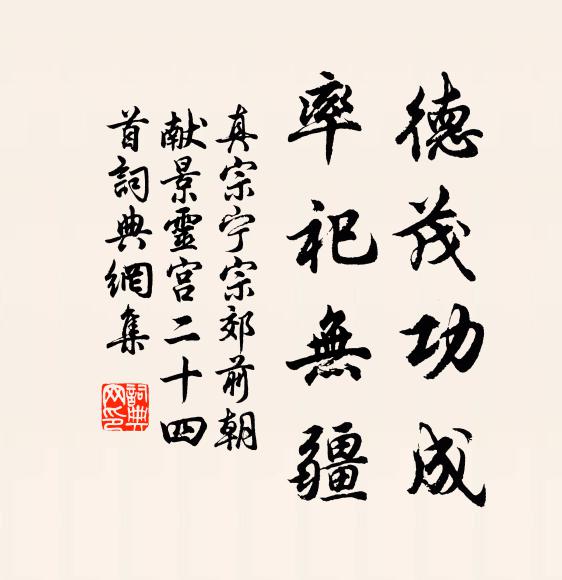 德茂功成
率祀無疆
真宗宁宗郊前朝
献景靈宫二十四
首詞典網集
詞典
网印